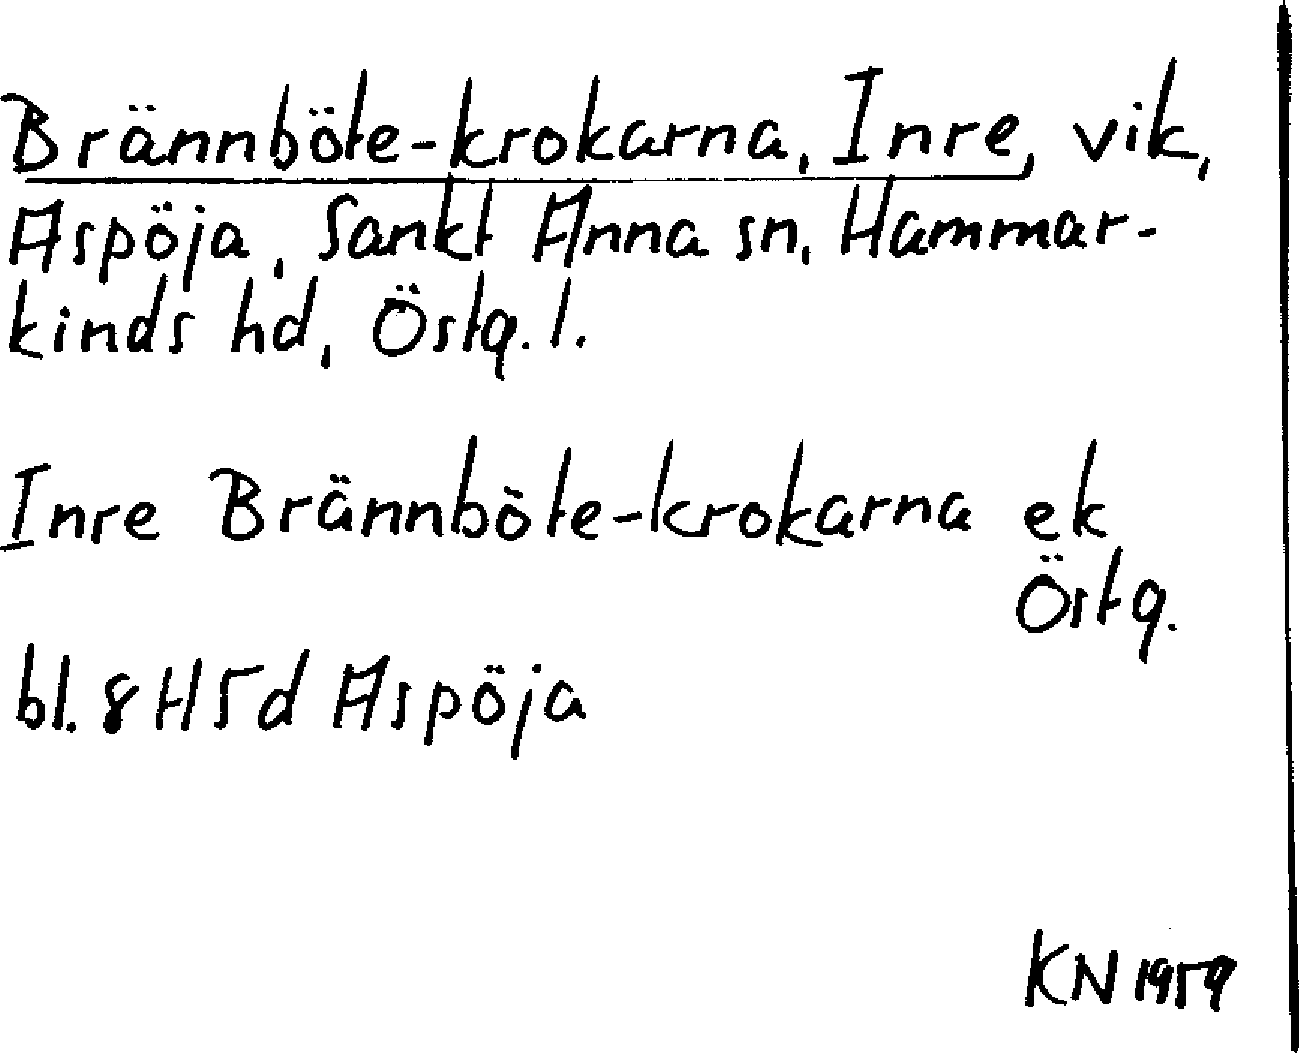 Brännböte-krokarna, Inre, vik,
Aspöja, Sankt Anna sn, Hammar-
kinds hd, Östg. l.
Inre Brännböte-krokarna ek
Östg.
bl. 8H5d Aspöja
KN 1959